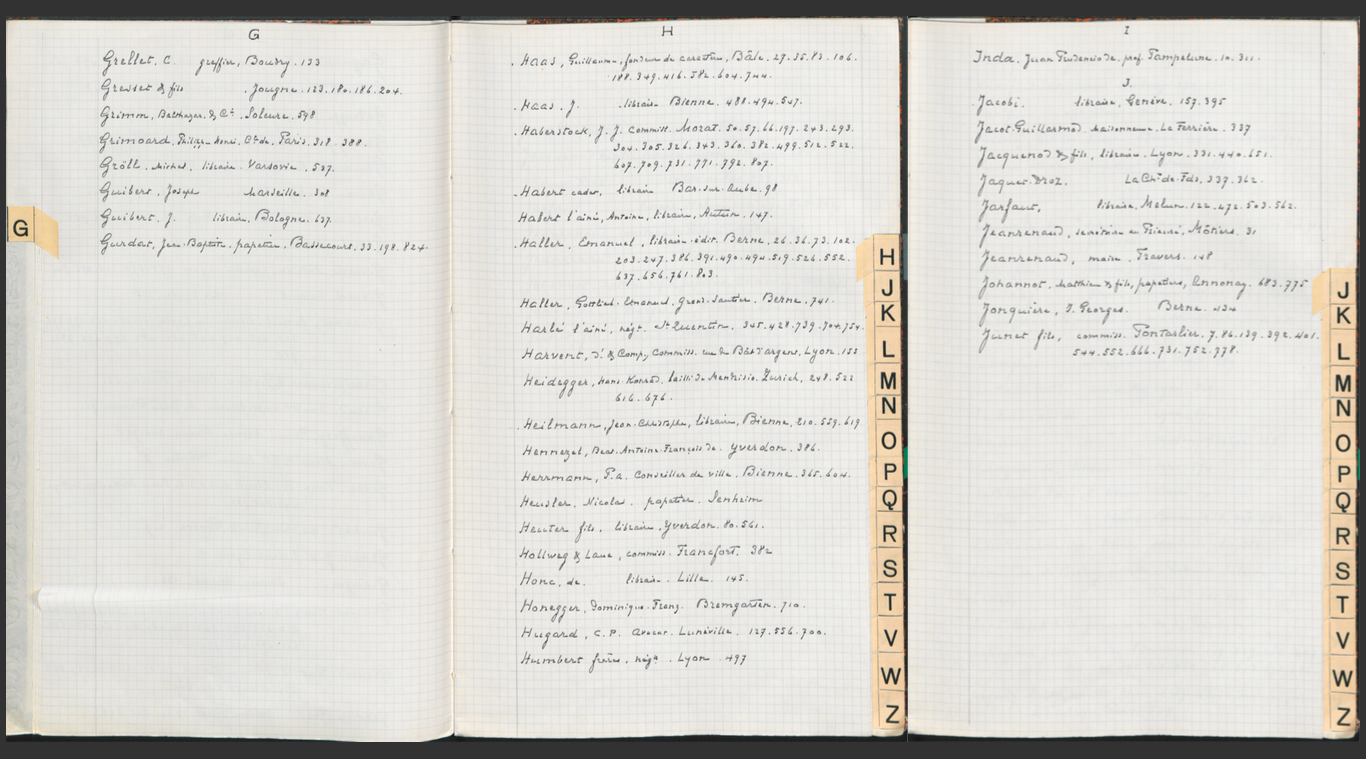 G
Grellet. C. greffier, Boudry. 133
Gresset & fils . Jougne. 123. 180. 186. 204.
Grimm, Balthazar, & Cie. Soleure. 598
Grimoard, Philipp-Henri, Cte de, Paris. 318. 388.
Gröll. Michel, libraire. Varsovie. 537.
Guibert, Joseph Marseille. 308
Guibert. J. libraire, Bologne. 637.
Gurdat, Jean-Baptiste, papetier, Bassecourt. 33. 198. 824.
G
H
Haas, Guillaume, fondeur de caractères, Bâle. 27. 35. 83. 106.
188. 349. 416. 582. 604. 744.
Haas, J. libraire Bienne. 488. 494. 547.
Haberstock, J. J. commiss. Morat. 50. 57. 66. 197. 243. 293.
304. 305. 326. 343. 360. 382. 499. 512. 522.
607. 709. 731. 771. 792. 807.
Habert cadet, libraire Bar-sur-Aube. 98
Habert l'aîné, Antoine, libraire, Autun. 147.
Haller, Emanuel, libraire-édit. Berne, 26. 36. 73. 102.
203. 247. 386. 391. 490. 494. 519. 526. 552.
637. 656. 761. 803.
Haller, Gottlieb-Emanuel, Berne. 741.
Harlé l'aîné, négt. St Quentin, 345. 428. 739. 704. 754.
Harvent, & Comp, Commiss. rue du Bât d'argent, Lyon. 153
Heidegger, Hans-Konrad, bailli de Mendrisio. Zurich, 248. 522
616. 676.
Heilmann, Jean-Christophe, libraire, Bienne, 210. 559. 619
Hennezel, Beat-Antoine-François de. Yverdon. 386.
Herrmann, P.a. Conseiller de ville. Bienne. 365. 604.
Heusler, Nicolas. papetier. Senheim
Heuter fils, libraire, Yverdon. 80. 561.
Hollweg & Laue, commiss. Francfort. 382
Honc, de. libraire. Lille. 145.
Honegger, Dominique-Franz. Bremgarten. 710.
Hugard, C. P. avocat. Lunéville. 127. 556. 700.
Humbert frères. négts. Lyon. 497
H
J
K
L
M
N
O
P
Q
R
S
T
V
W
Z
I
Inda. Juan Prudencio de, prof. Pampelune. 10. 311.
J.
Jacobi. libraire, Genève, 157. 395
Jacot-Guillarmod. La Ferrière. 337
Jacquenod & fils, libraire. Lyon. 331. 440. 651.
Jaquet-Droz. La Chx-de-Fds, 337. 362.
Jarfaut, libraire, Melun. 122. 472. 503. 562.
Jeanrenaud, secrétaire au Prieuré, Môtiers. 31
Jeanrenaud, maire. Travers. 148
Johannot, Matthieu & fils, papetiers, Annonay. 683. 775
Jonquière, F. Georges. Berne. 434
Junet fils, commiss. Pontarlier. 7. 86. 139. 392. 401.
544. 552. 666. 731. 752. 778.
J
K
L
M
N
O
P
Q
R
S
T
V
W
Z